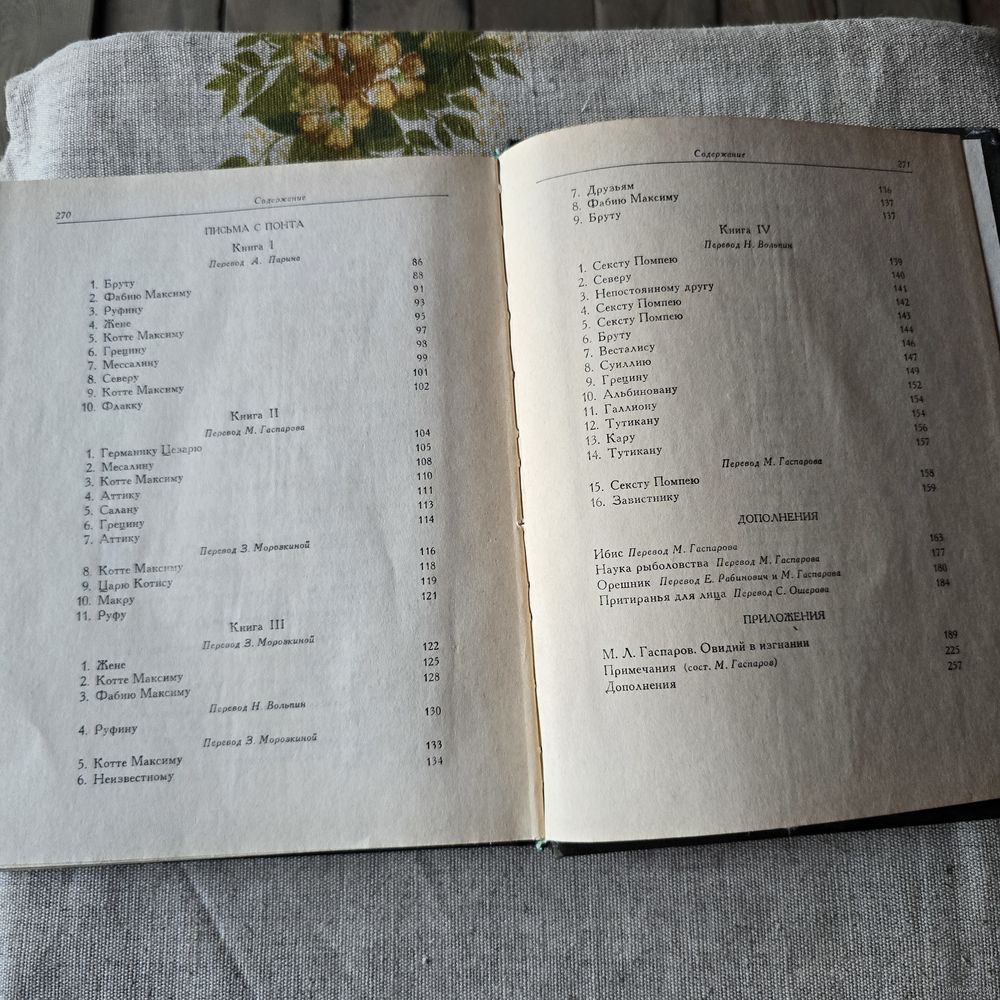 270
Содержание
ПИСЬМА С ПОНТА
Книга I
Перевод А. Парина
1. Бруту 86
2. Фабию Максиму 88
3. Руфину 91
4. Жене 93
5. Котте Максиму 95
6. Грецину 97
7. Мессалину 98
8. Северу 99
9. Котте Максиму 101
10. Флакку 102
Книга II
Перевод М. Гаспарова
1. Германику Цезарю 104
2. Месалину 105
3. Котте Максиму 108
4. Аттику 110
5. Салану 111
6. Грецину 113
7. Аттику 114
Перевод З. Морозкиной
8. Котте Максиму 116
9. Царю Котису 118
10. Макру 119
11. Руфу 121
Книга III
Перевод З. Морозкиной
1. Жене 122
2. Котте Максиму 125
3. Фабию Максиму 128
Перевод Н. Вольпин
4. Руфину 130
Перевод З. Морозкиной
5. Котте Максиму 133
6. Неизвестному 134
Содержание
271
7. Друзьям 136
8. Фабию Максиму 137
9. Бруту 137
Книга IV
Перевод Н. Вольпин
1. Сексту Помпею 139
2. Северу 140
3. Непостоянному другу 141
4. Сексту Помпею 142
5. Сексту Помпею 143
6. Бруту 144
7. Весталису 146
8. Суиллию 147
9. Грецину 149
10. Альбиновану 152
11. Галлиону 154
12. Тутикану 154
13. Кару 156
14. Тутикану 157
Перевод М. Гаспарова
15. Сексту Помпею 158
16. Завистнику 159
ДОПОЛНЕНИЯ
Ибис Перевод М. Гаспарова 163
Наука рыболовства Перевод М. Гаспарова 177
Орешник Перевод Е. Рабинович и М. Гаспарова 180
Притиранья для лица Перевод С. Ошерова 184
ПРИЛОЖЕНИЯ
М. Л. Гаспаров. Овидий в изгнании 189
Примечания (сост. М. Гаспаров) 225
Дополнения 257